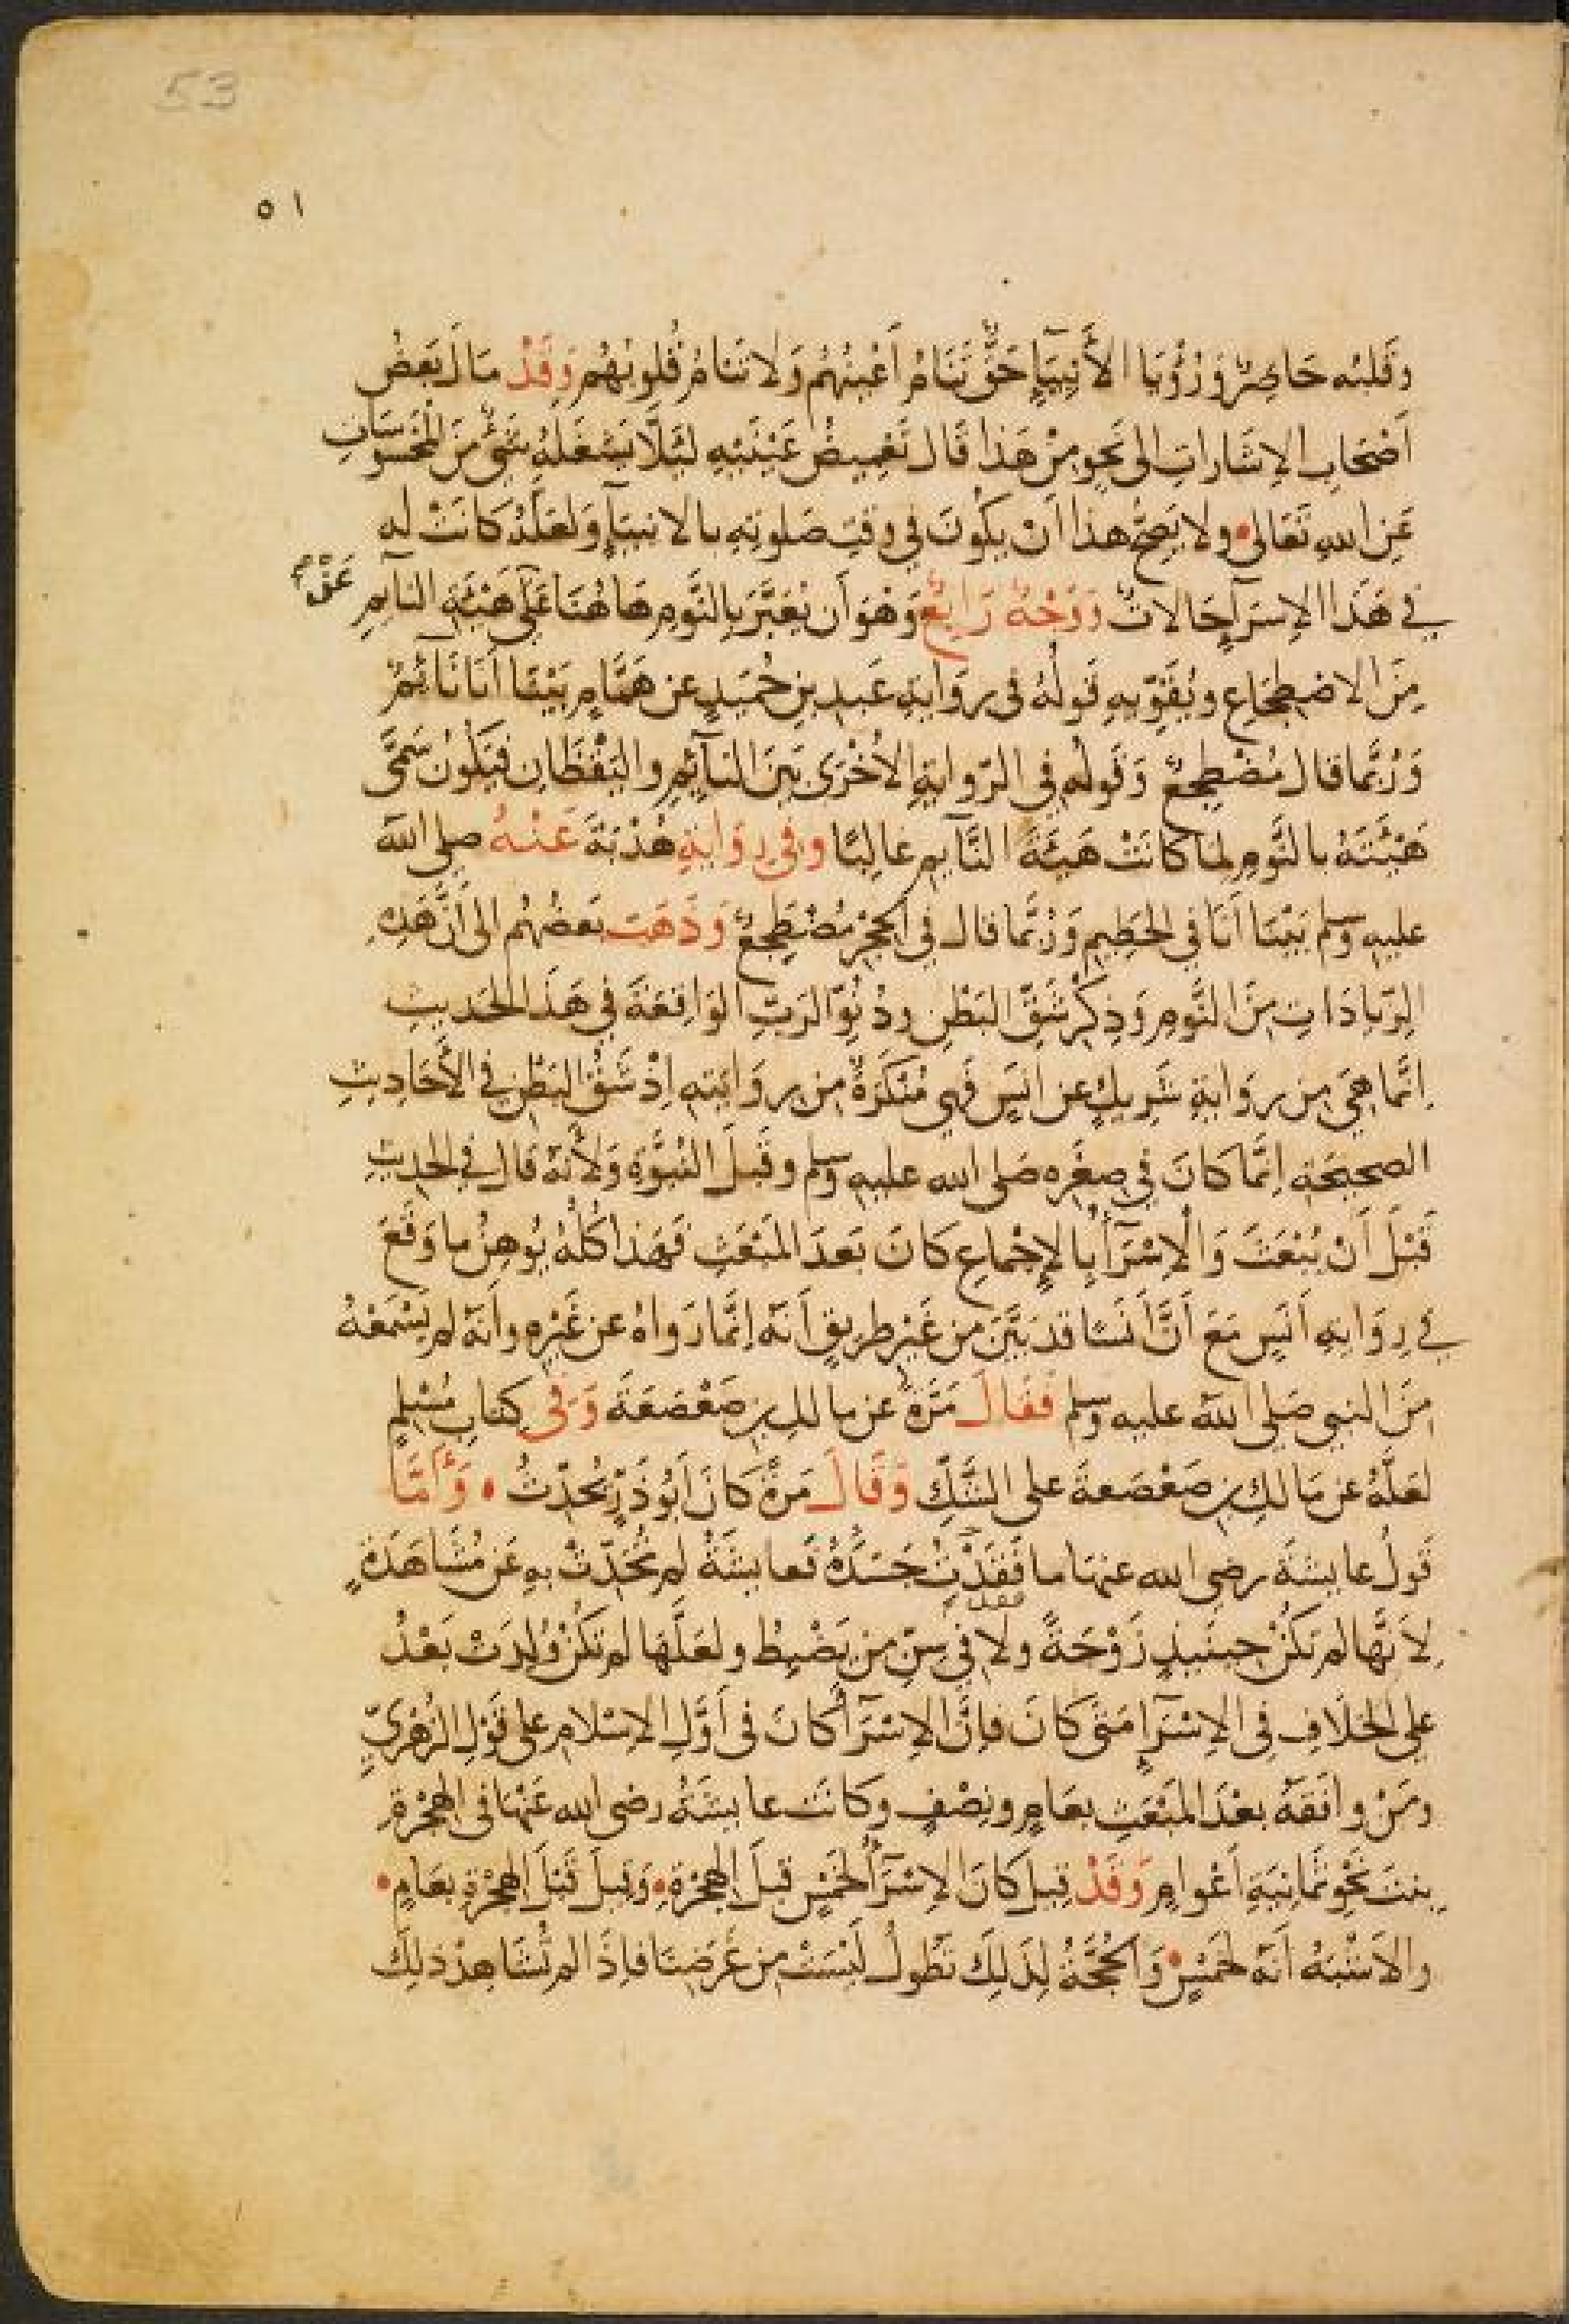 53
٥١
وَقَلبُه حَاضِرٌ وَرُؤْيَا الأَنبِيَآءِ حَقٌّ تَنَامُ أَعْيُنُهُم وَلَا تَنَامُ قُلُوبُهُم وَقَدْ مَالَ بَعضُ
أَصْحَابِ الإِشَارَاتِ الى نَحوٍ مِنْ هَذا قَالَ تَغمِيضُ عَيْنَيْهِ لِئَلَّا يَشْغَلَهُ شَىْءٌ مِنَ المَحْسُوسَاتِ
عَنِ اللهِ تَعَالى • ولا يَصِحُّ هذا أَنْ يَكُونَ فِي وَقتِ صَلوتِهِ بالانبِيَآءِ وَلَعَلَّهُ كَانَتْ لَه
فِي هَذَا الإِسرَآءِ حَالاتٌ وَوَجْهٌ رَابِعٌ وَهْوَ أَن يُعَبَّرَ بِالنَّومِ هَاهُنَا عَلَى هَيْئَةِ النآئم
عَنْ
مِنَ الاضطِجَاعِ ويُقَوِّيهِ قَولُهُ فى رِوَايةِ عَبدِ بنِ حُمَيدٍ عن هَمَّامٍ بَيْنَا أَنَا نَآئِمٌ
وَرُبَّما قال مُضْطَجِعٌ وَقَولُه فى الرّوايةِ الأُخْرَى بَينَ النَآئِمِ واليَقْظَانِ فيَكُونُ سَمَّى
هَيْئَتَهُ بالنَّومِ لما كانَتْ هَيئَةَ النَّآيِمِ غالِبًا وفى رِوَايَةِ هُدْبَةَ عَنْهُ صلى الله
عليه وسلم بَيْنَا أَنَا في الحَطِيمِ وَرُبَّما قال فِي الحِجْرِ مُضْطَجِعٌ وَذَهَبَ بَعضُهُم الى أنَّ هَذِهِ
الزِّيادَاتِ مِنَ النَّومِ وَذِكْرِ شَقِّ البَطْنِ ودُنُوِّ الرَبِّ الوَاقِعَةَ فِي هَذا الحَديثِ
إنَّما هِيَ مِن رِوَايةِ شَرِيكٍ عن انَسٍ فَهي مُنْكَرَةٌ من رِوَايَتِهِ إِذْ شَقُّ البَطْنِ فِي الأَحَادِيثِ
الصحِيحَةِ إِنَّمَا كَانَ فِي صِغَرِهِ صَلى الله عليه وسلم وقَبلَ النُبُوَّةِ وَلأنهُ قَالَ فِي الحَديثِ
قَبْلَ أَنْ يُبْعَثَ وَالْإِسْرَآءُ بِالإِجْمَاعِ كانَ بَعدَ المَبْعَثِ فَهَذا كُلُّهُ يُوهِنُ ما وَقَعَ
في رِوَايةِ أَنَسٍ مَعَ أَنَّ أَنَسًا قد بَيَّنَ من غَيْرِ طريقٍ أَنّه إِنَّما رَواهُ عن غَيْرِهِ وأَنّه لم يَسْمَعْهُ
مِنَ النبى صَلى الله عليه وسلم فَقَالَ مَرَّةً عن مالكِ بنِ صَعْصَعَةَ وَفى كتابِ مُسْلِمٍ
لعَلَّهُ عن مَالكِ بنِ صَعْصَعةَ على الشَّكِّ وَقَالَ مَرةً كَانَ أَبُو ذَرٍّ يُحَدِّثُ • وَأَمَّا
قَولُ عايشَةَ رضى الله عنها ما فَقَدْتُ جَسَدَهُ فَعايشَةُ لم تُحَدِّثْ به عَن مُشَاهَدَةٍ
لأنَّها لم تَكُنْ حِينَيذٍ زَوْجَةً ولا في سِنِّ من يَضْبِطُ ولعَلَّهَا لم تَكُنْ وُلِدَتْ بَعْدُ
على الخلَافِ فى الإِسْرَآءِ مَتى كانَ فإنَّ الإِسْرَآءَ كَانَ فى أَوَّلِ الإسْلامِ على قَوْلِ الزُهْرِيِّ
ومَنْ وافَقَهُ بعْدَ المَبْعَثِ بعَامٍ ونِصْفٍ وكَانَت عايشَةُ رضى الله عَنْها فى الهِجْرَةِ
بِنتَ نَحْوِ ثَمانِيَةِ أَعْوامٍ وَقَدْ قيلَ كانَ الإِسْرَآءُ لخَمْسٍ قبلَ الهِجْرَةِ • وَقِيلَ قَبْلَ الهِجْرَةِ بعَامٍ •
والأشْبَهُ أَنَّه لخَمْسٍ • وَالحُجَّةُ لِذَلِكَ تَطُولُ لَيْسَتْ من غَرَضِنَا فإذَا لم تُشَاهِدْ ذلِكَ